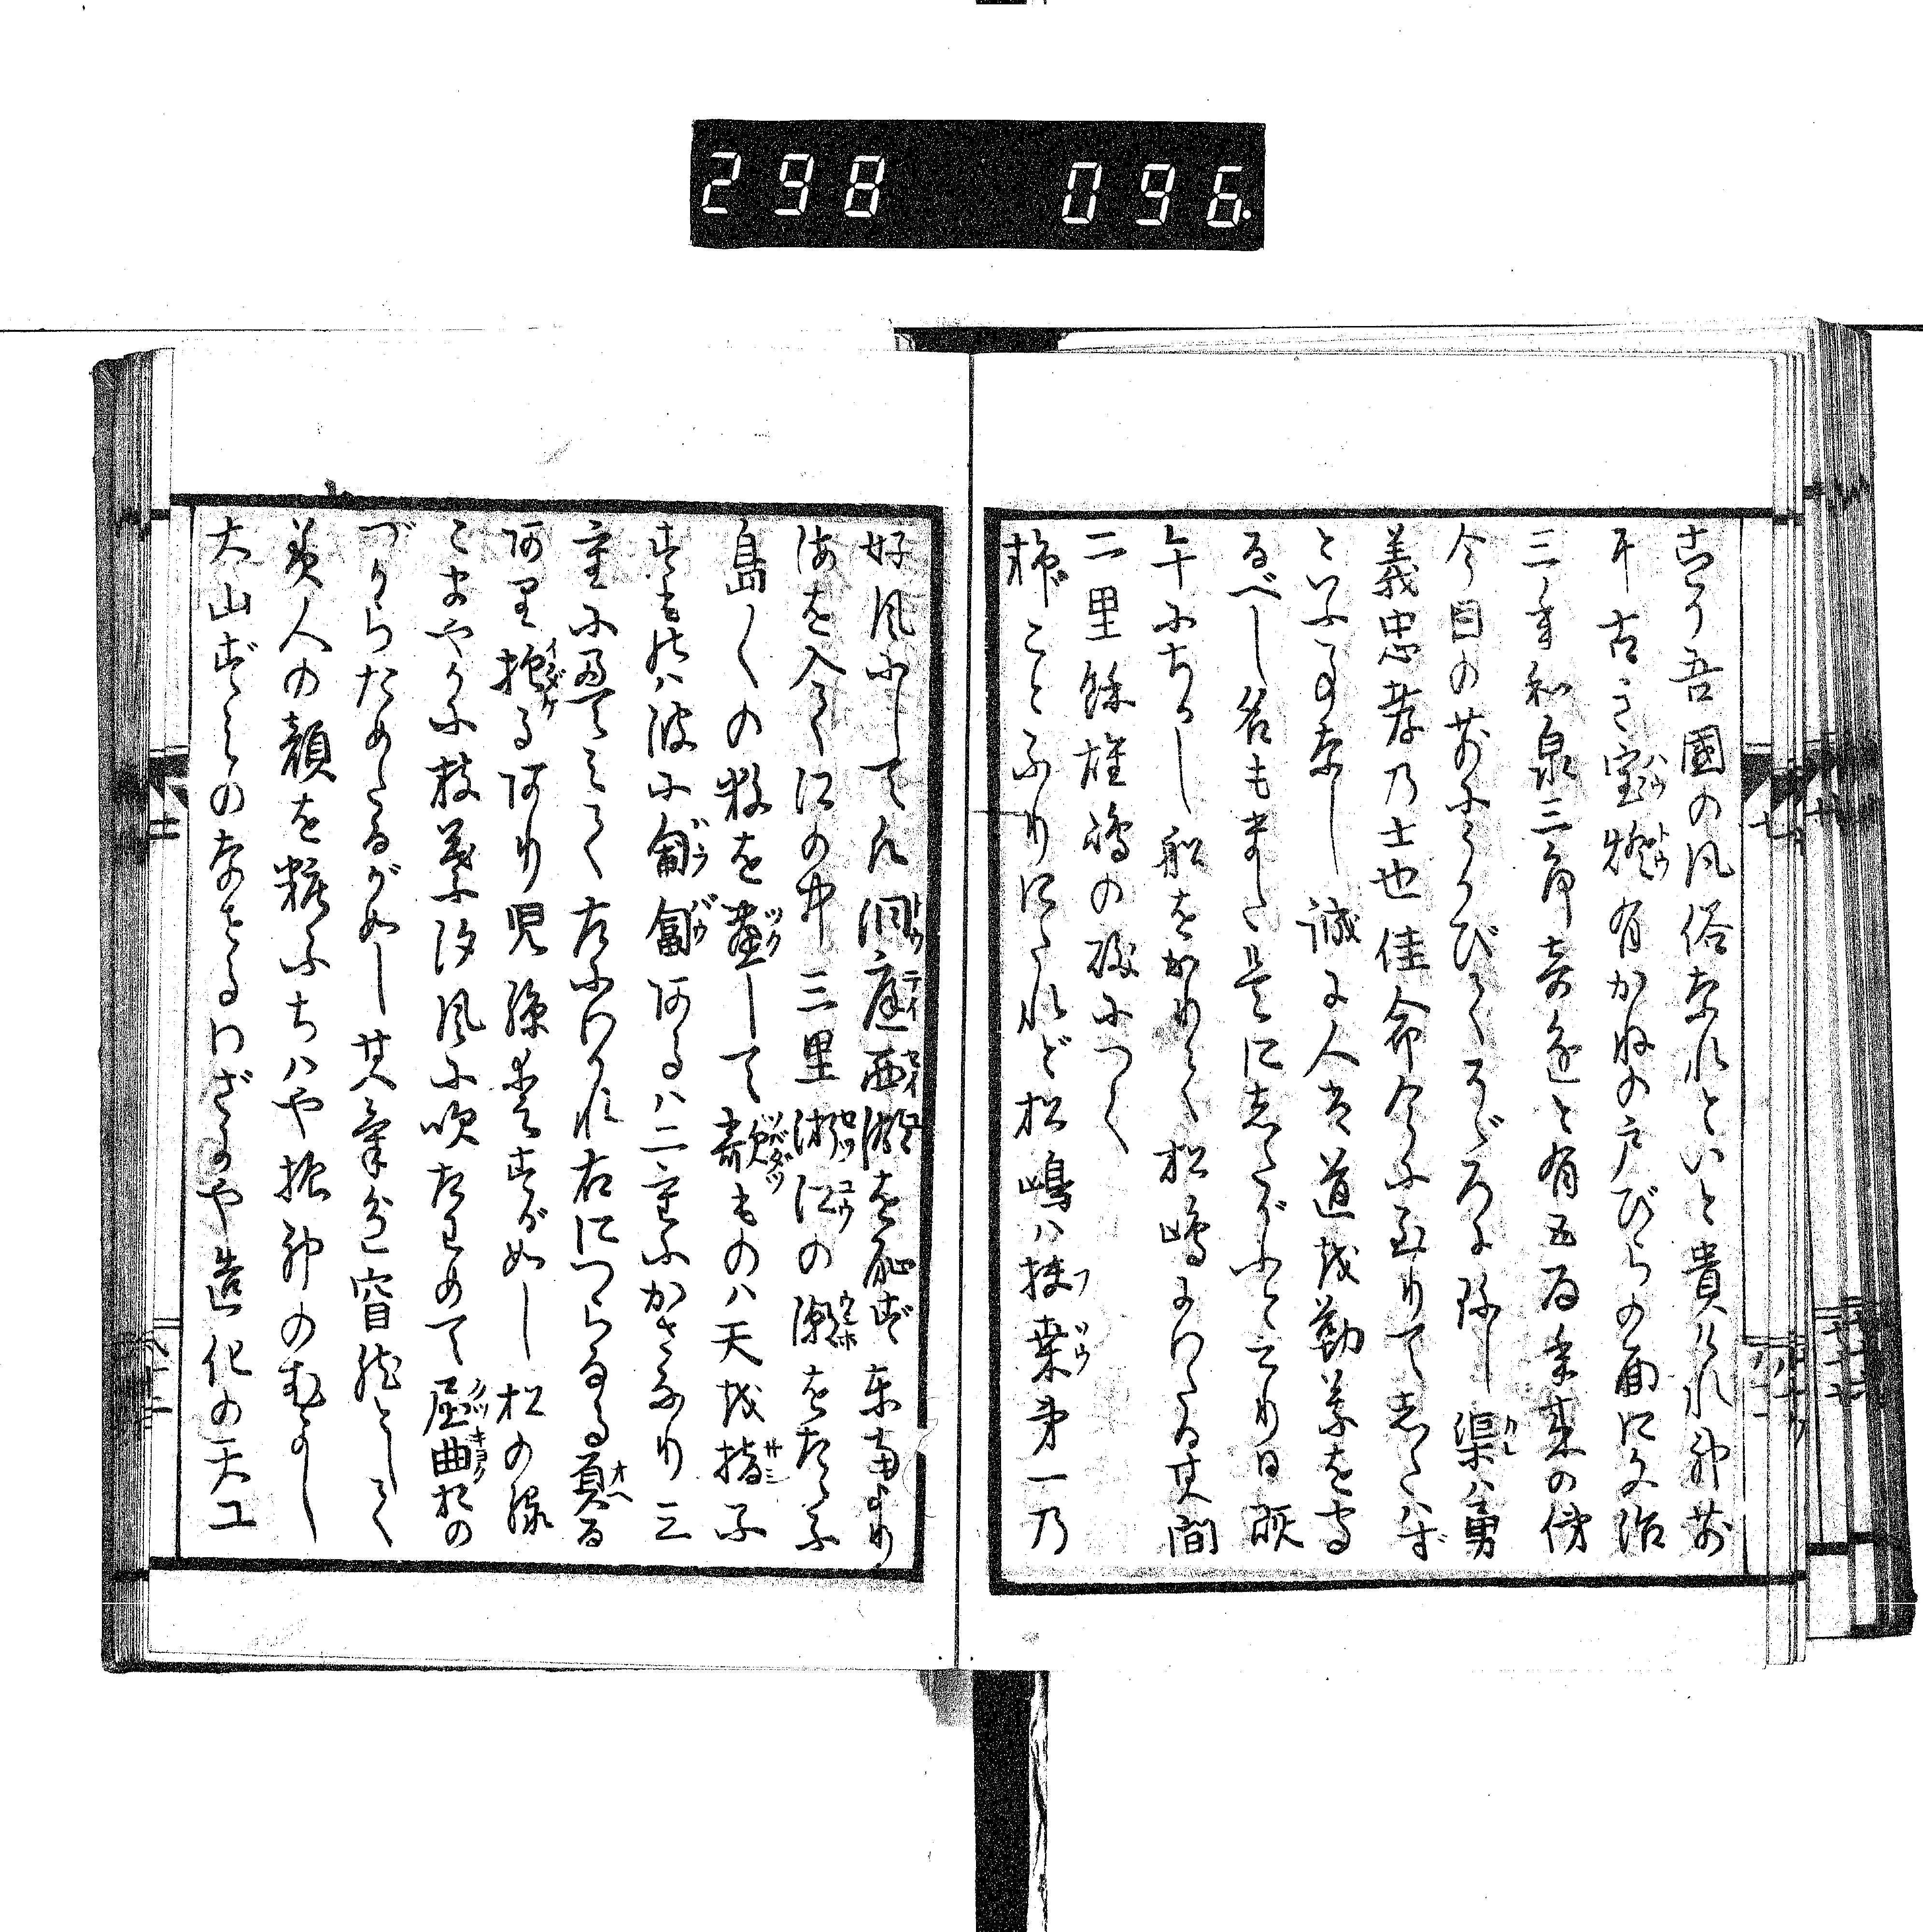 298 096.
こそ吾國の風俗なれといと貴けれ神前
に古き宝燈有かねの戸びらの面に文治
三年和泉三郎寄進と有五百年来の俤
今目の前にうかびてそゞろに珍し渠ハ勇
義忠孝の士也佳命今に至りてしたハず
といふ事なし誠に人能道を勤義を守
るべし名もまた是にしたがふと云り日既
午にちかし船をかりて松嶋にわたる其間
二里餘雄嶋の磯につく
抑ことふりにたれど松嶋ハ扶桑第一の
好風にして凡洞庭西湖を恥ず東南より
海を入て江の中三里浙江の潮をたゝふ
島〳〵の数を盡して欹ものハ天を指ふ
すものハ波に匍匐あるハ二重にかさなり三
重に畳みて左にわかれ右につらなる負る
あり抱るあり児孫愛すがごとし松の緑
こまやかに枝葉汐風に吹たわめて屈曲おの
づからためたるがごとし其氣色窅然として
美人の顔を粧ふちハや振神のむかし
大山ずみのなせるわざにや造化の天工